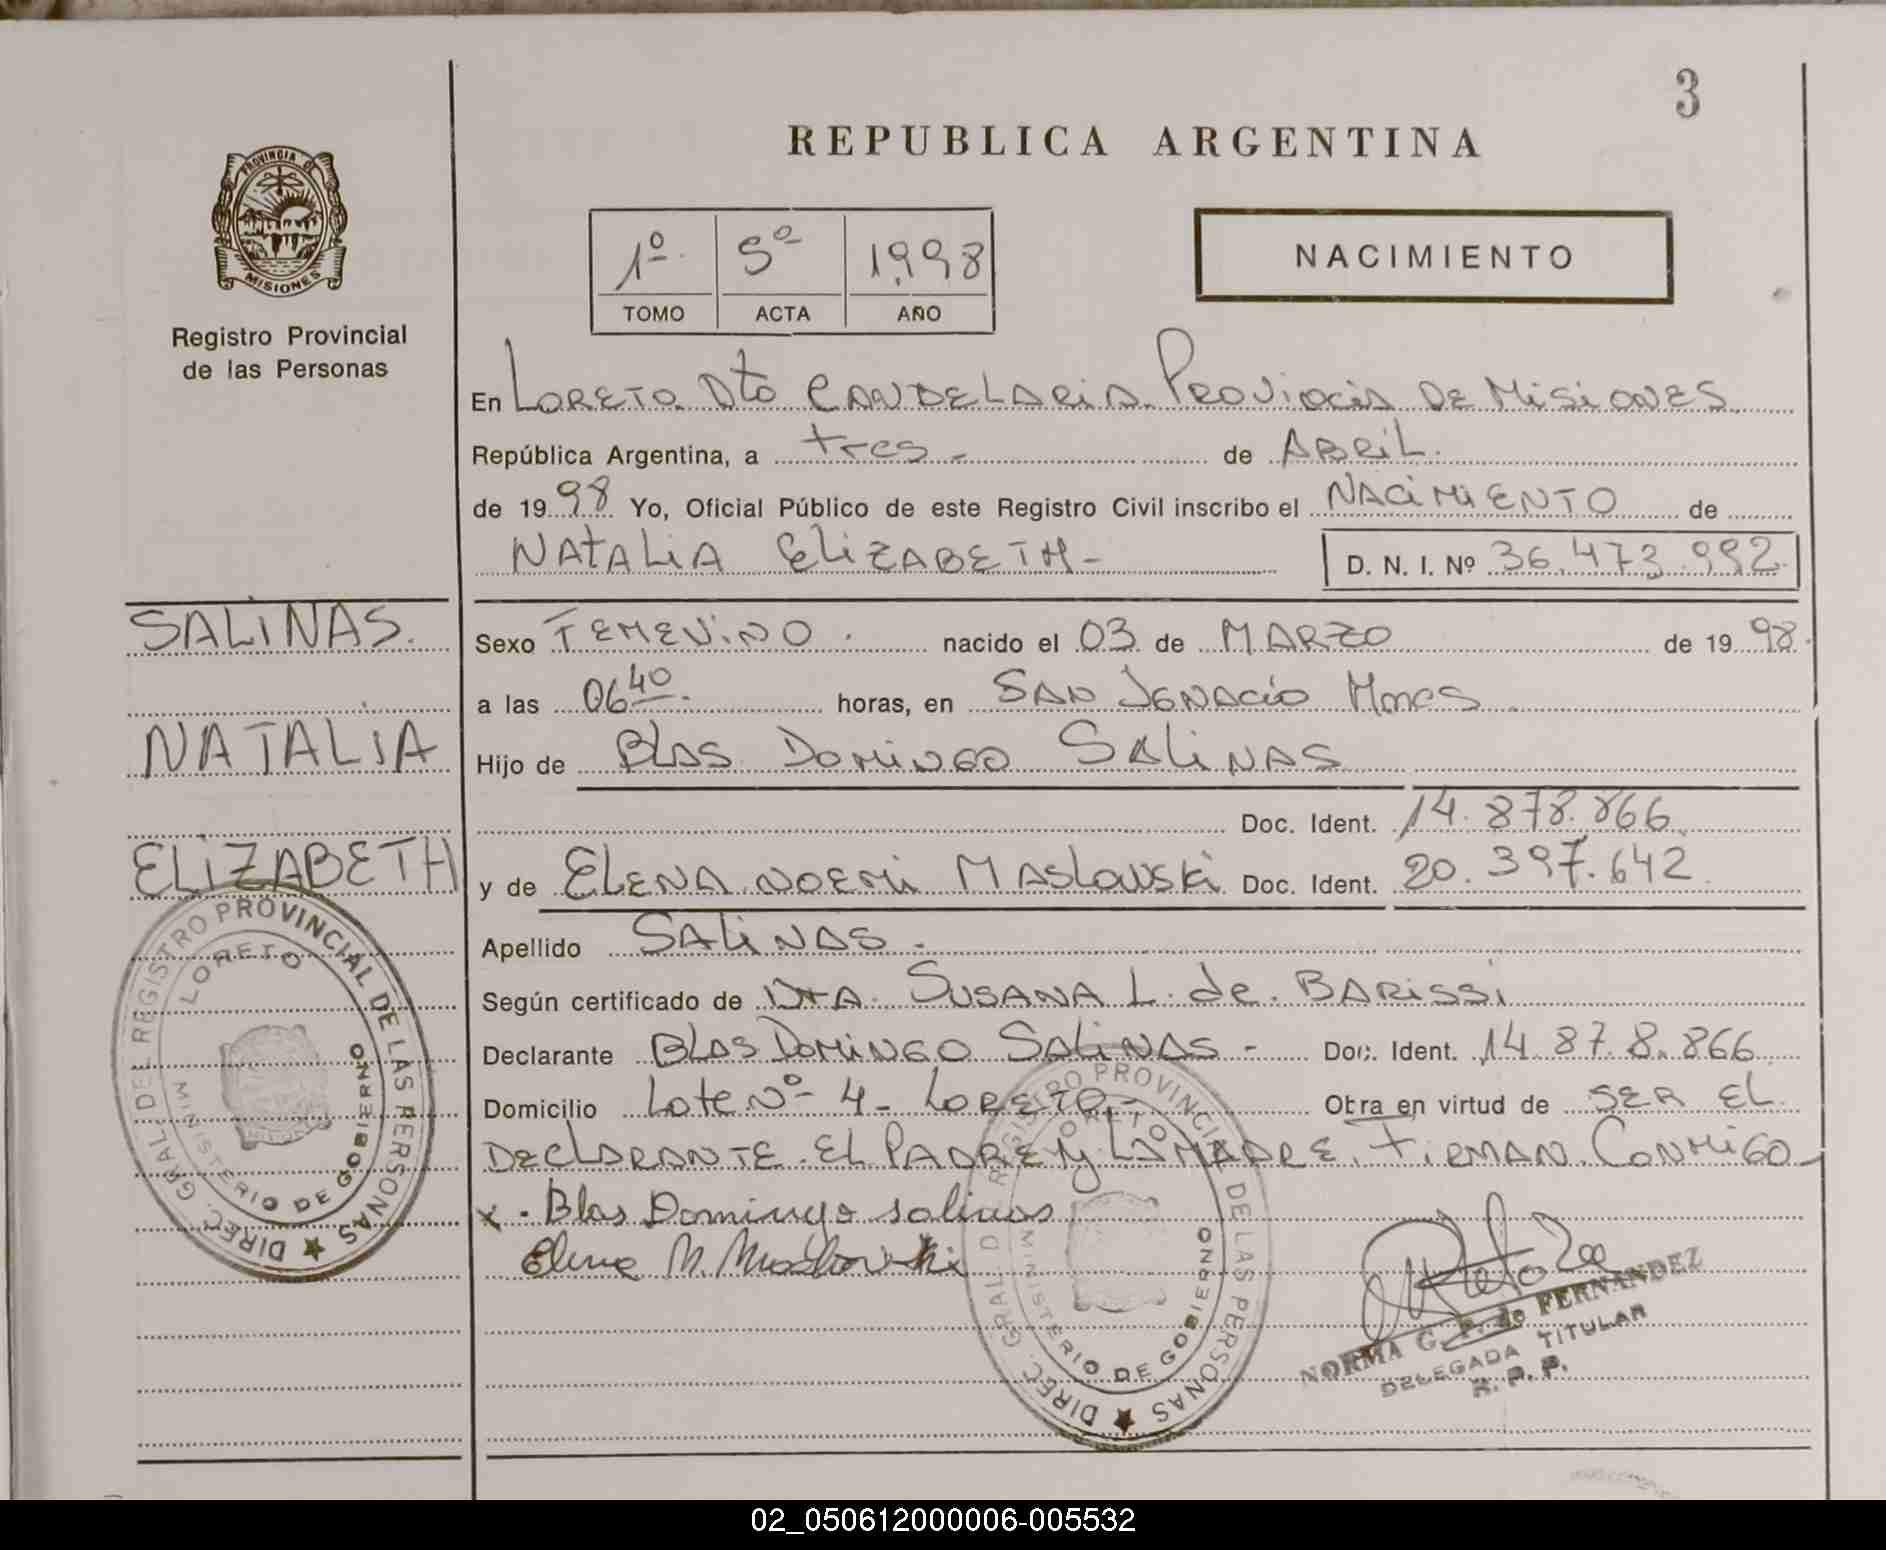 3
REPUBLICA ARGENTINA
PROVINCIA DE
MISIONES
Registro Provincial
de las Personas
1º 5º 1.998
TOMO ACTA AÑO
NACIMIENTO
En LORETO. Dto CANDELARIA. PROVINCIA DE MISIONES
República Argentina, a tres - de ABRIL.
de 19 98 Yo, Oficial Público de este Registro Civil inscribo el NACIMIENTO de
NATALIA ELIZABETH - D. N. I. Nº 36.473.992
SALINAS.
NATALIA
ELIZABETH
Sexo FEMENINO. nacido el 03 de MARZO de 19 98.
a las 06 40. horas, en SAN IGNACIO Mnes.
Hijo de BLAS DOMINGO SALINAS
Doc. Ident. 14.878.866
y de ELENA NOEMI MASLOWSKI Doc. Ident. 20.397.642
Apellido SALINAS.
Según certificado de DRA. SUSANA L. de BARISSI
Declarante BLAS DOMINGO SALINAS - Doc. Ident. 14.878.866
Domicilio Lote Nº 4 - LORETO.- Obra en virtud de SER EL
DECLARANTE EL PADRE y LA MADRE. FIRMAN CONMIGO
x. Blas Domingo salinas
Elena N. Maslowski
NORMA G. P. de FERNANDEZ
DELEGADA TITULAR
R. P. P.
DIREC. GRAL. DE REGISTRO PROVINCIAL DE LAS PERSONAS
LORETO
MINISTERIO DE GOBIERNO
DIREC. GRAL. DE REGISTRO PROVINCIAL DE LAS PERSONAS
LORETO
MINISTERIO DE GOBIERNO
02_050612000006-005532